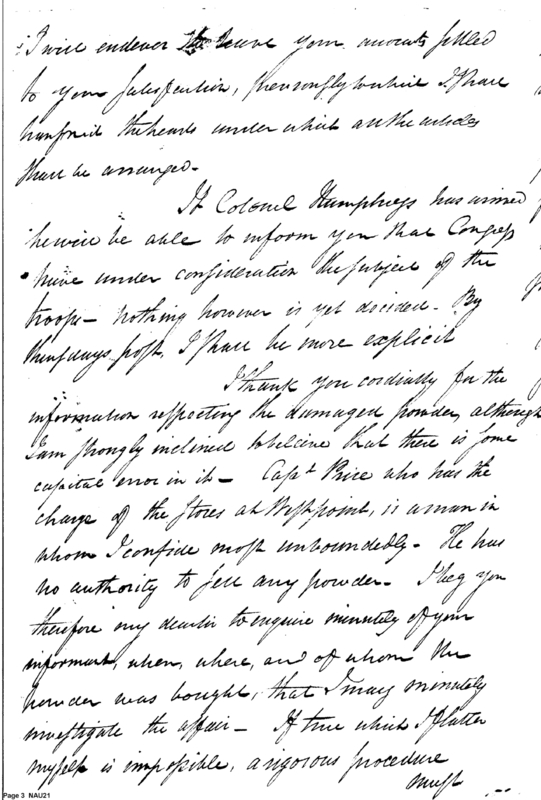 I will endever to have your accounts settled
to your satisfaction, previously to which I shall
transmit the heads under which all the articles
shall be arranged.
If Colonel Humphreys has arrived
he will be able to inform you that Congress
have under consideration the subject of the
troops - nothing however is yet decided. By
thursdays post, I shall be more explicit
I thank you cordially for the
information respecting the damaged powder, although
I am strongly inclined to believe that there is some
capital error in it - Capt Price who has the
charge of the stores at Westpoint, is a man in
whom I confide most unboundedly. He has
no authority to sell any powder. I beg you
therefore my dear sir to enquire minutely of your
informant, when, where, and of whom the
powder was bought, that I may minutely
investigate the affair - If true which I flatter
myself is impossible, a rigorous procedure
must
Page 3 NAU21